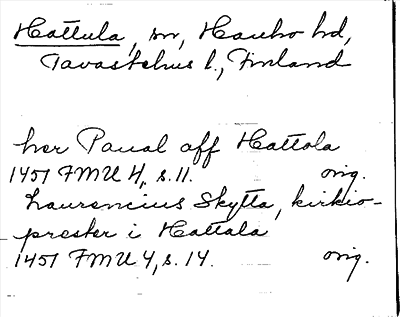 Hattula, sn, Hauho hd,
Tavastehus l., Finland
her Paual aff Hattola
1451 FMU 4, s. 11. orig.
Laurencius Skytta, kirkio-
prester i Hattala
1451 FMU 4, s. 14. orig.